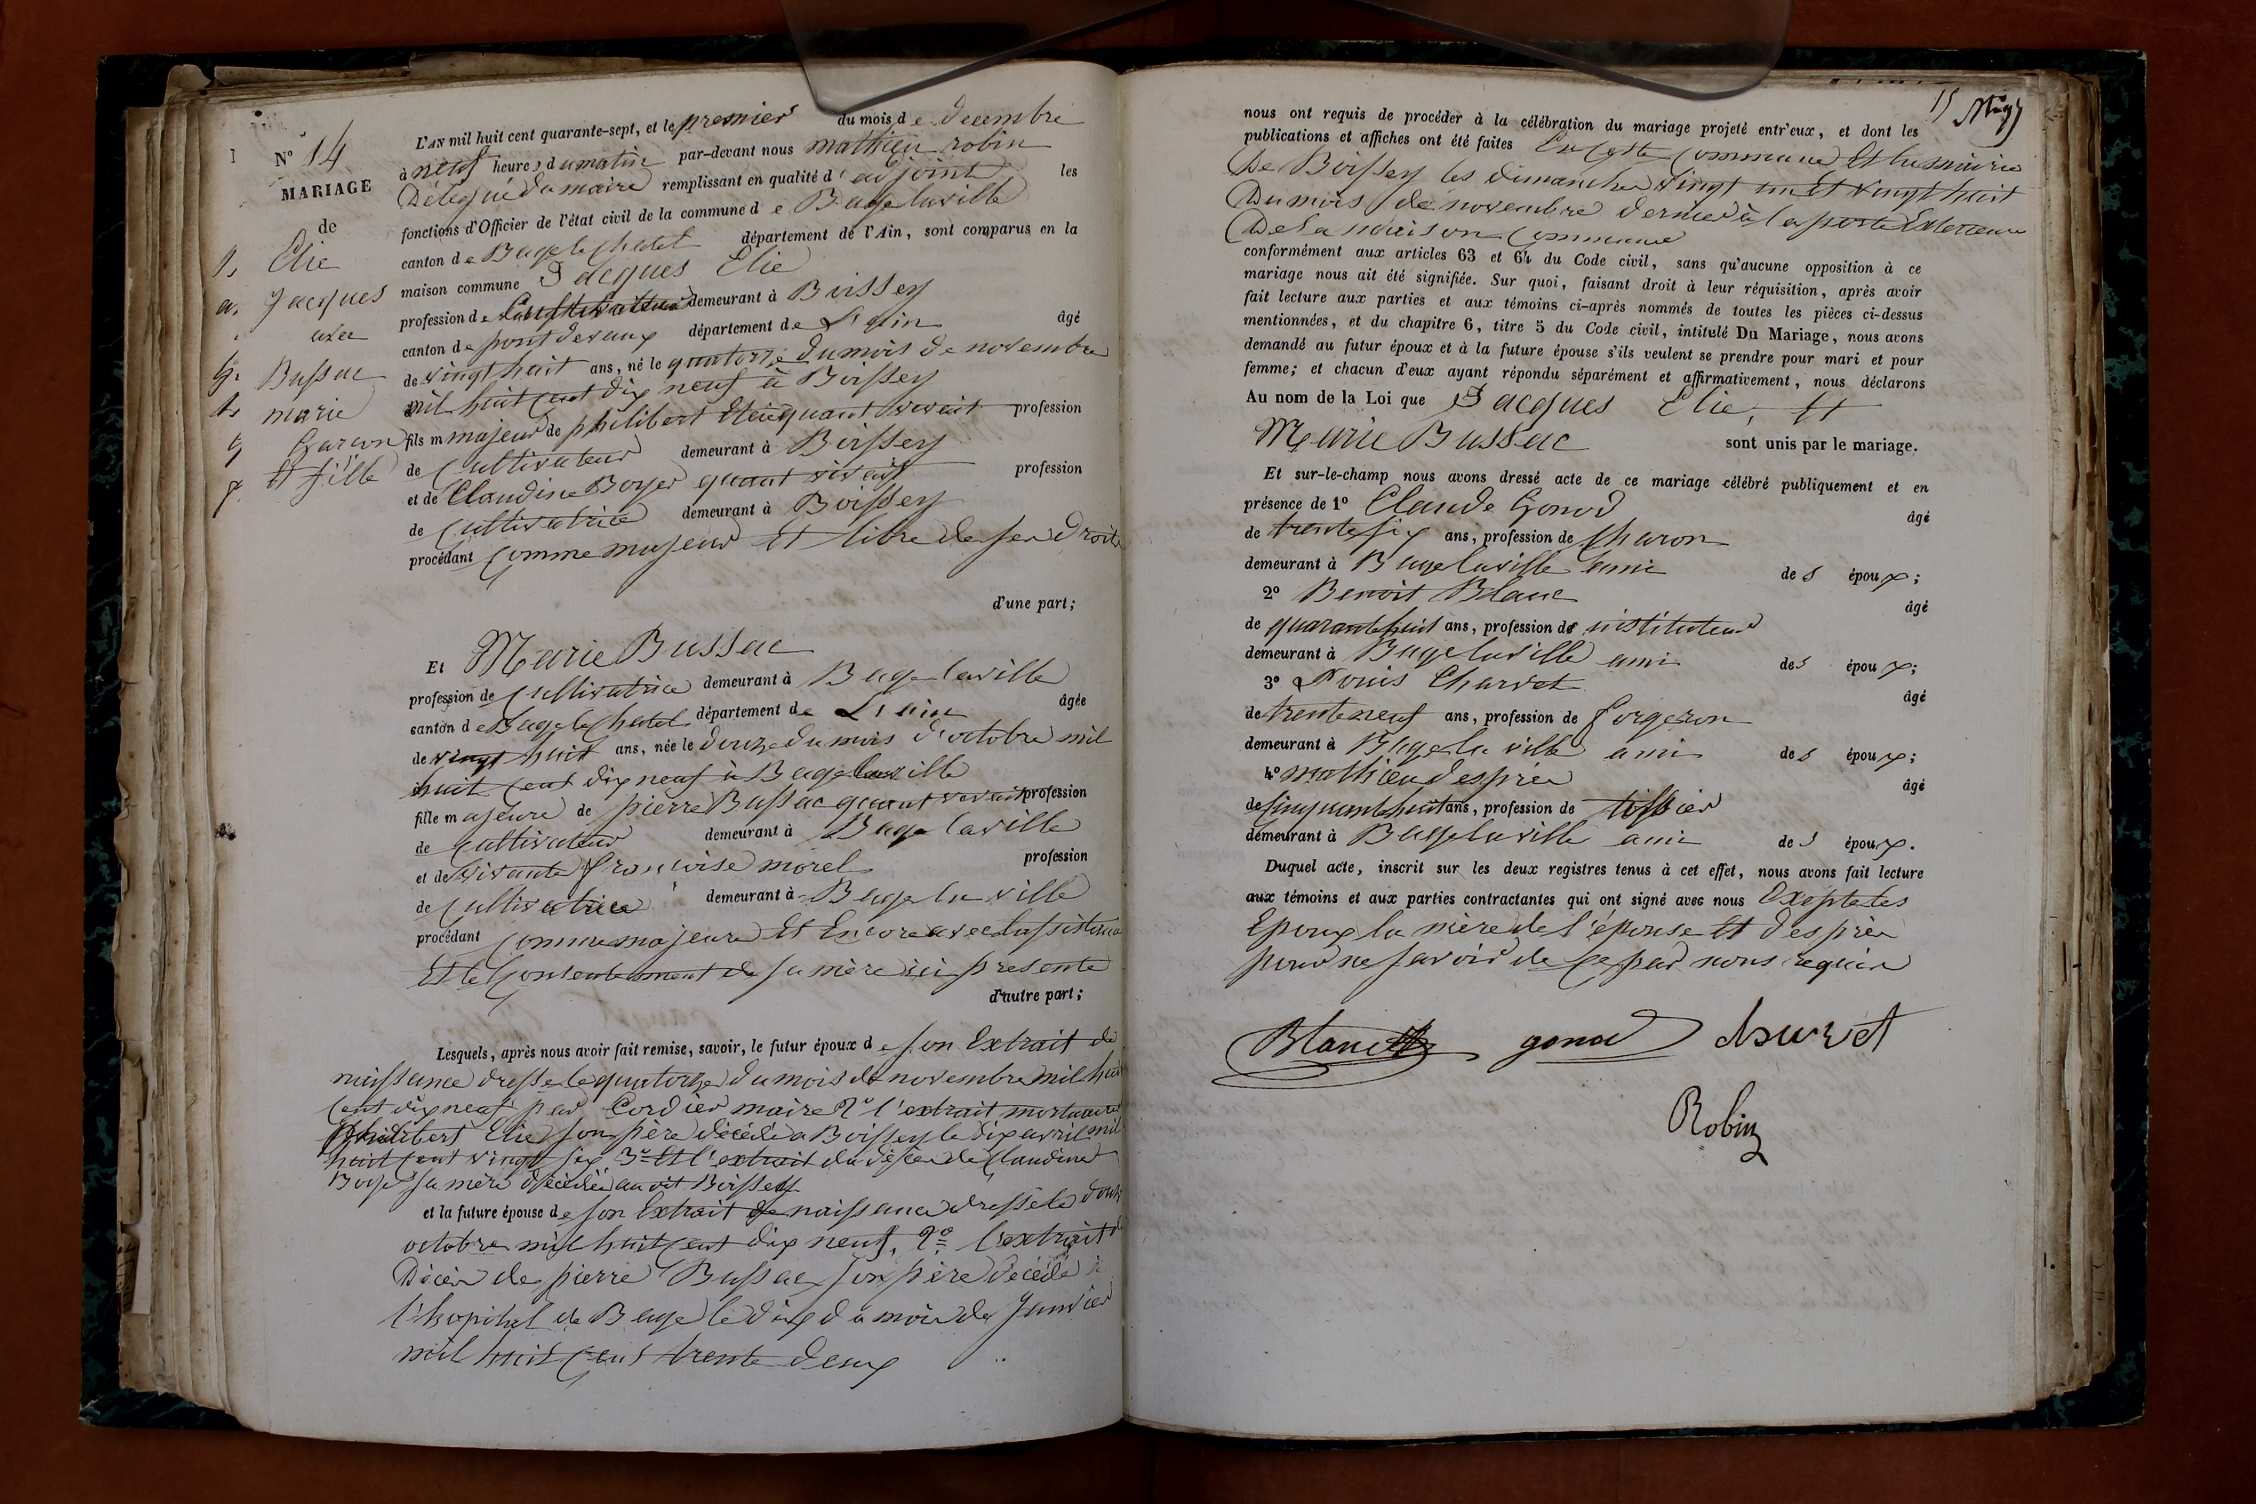 N° 14
MARIAGE
de
Elie
Jacques
avec
Bussac
marie
Garcon
et fille
L'AN mil huit cent quarante-sept, et le premier du mois de decembre
à neuf heures du matin par-devant nous mathieu robin
Délégué du maire remplissant en qualité d'adjoint les
fonctions d'Officier de l'état civil de la commune de Bage laville
canton de Bage le Chatel département de l'Ain, sont comparus en la
maison commune Jacques Elie
profession de Cultivateur demeurant à Boissey
canton de pont devaux département de L'ain âgé
de vingt huit ans, né le quatorze du mois de novembre
mil huit cent dix neuf à Boissey
fils majeur de philibert Elie quant vivait profession
de Cultivateur demeurant à Boissey
et de Claudine Boyer quant vivait profession
de Cultivatrice demeurant à Boissey
procédant comme majeur et libre de ses droits
d'une part;
Et Marie Bussac
profession de Cultivatrice demeurant à Bage laville
canton de Bage le Chatel département de L'ain âgée
de vingt huit ans, née le douze du mois d'octobre mil
huit cent dix neuf à Bage laville
fille majeure de pierre Bussac quant vivait profession
de Cultivateur demeurant à Bage laville
et de vivante francoise morel profession
de Cultivatrice demeurant à Bage la ville
procédant comme majeure et Encore avec lassistance
et le Consentement de sa mère ici presente
d'autre part;
Lesquels, après nous avoir fait remise, savoir, le futur époux de son Extrait de
naissance dressé le quatorze du mois de novembre mil huit
cent dix neuf par Cordier maire 2° l'extrait mortuaire
philibert Elie son père décédé a Boissey le dix avril mil
huit cent vingt six 3° et l'extrait du déces de Claudine
Boyer sa mère décédée au dit Boissey
et la future épouse de son Extrait de naissance dressé le douze
octobre mil huit cent dix neuf, 2° l'extrait de
Décès de pierre Bussac son père décédé à
l'hopital de Bage le dix du mois de Janvier
mil huit cent trente deux
15
nous ont requis de procéder à la célébration du mariage projeté entr'eux, et dont les
publications et affiches ont été faites En Cette Commune et la mairie
De Boissey les dimanches vingt un et vingt huit
Du mois de novembre dernier à la porte Exterieure
De la maison Commune
conformément aux articles 63 et 64 du Code civil, sans qu'aucune opposition à ce
mariage nous ait été signifiée. Sur quoi, faisant droit à leur réquisition, après avoir
fait lecture aux parties et aux témoins ci-après nommés de toutes les pièces ci-dessus
mentionnées, et du chapitre 6, titre 5 du Code civil, intitulé Du Mariage, nous avons
demandé au futur époux et à la future épouse s'ils veulent se prendre pour mari et pour
femme; et chacun d'eux ayant répondu séparément et affirmativement, nous déclarons
Au nom de la Loi que Jacques Elie, Et
Marie Bussac sont unis par le mariage.
Et sur-le-champ nous avons dressé acte de ce mariage célébré publiquement et en
présence de 1° Claude Gonod âgé
de trente six ans, profession de Charon
demeurant à Bage laville ami des époux;
2° Benoit Blanc âgé
de quarante huit ans, profession de instituteur
demeurant à Bage laville ami des époux;
3° Louis Charvet âgé
de trente neuf ans, profession de forgeron
demeurant à Bage la ville ami des époux;
4° mathieu desprès âgé
de Cinquante huit ans, profession de tissier
demeurant à Bage laville ami des époux.
Duquel acte, inscrit sur les deux registres tenus à cet effet, nous avons fait lecture
aux témoins et aux parties contractantes qui ont signé avec nous Exepte les
Epoux la mère de l'épouse et desprès
pour ne savoir de ce par nous requis
Blanc gonod charvet
Robin